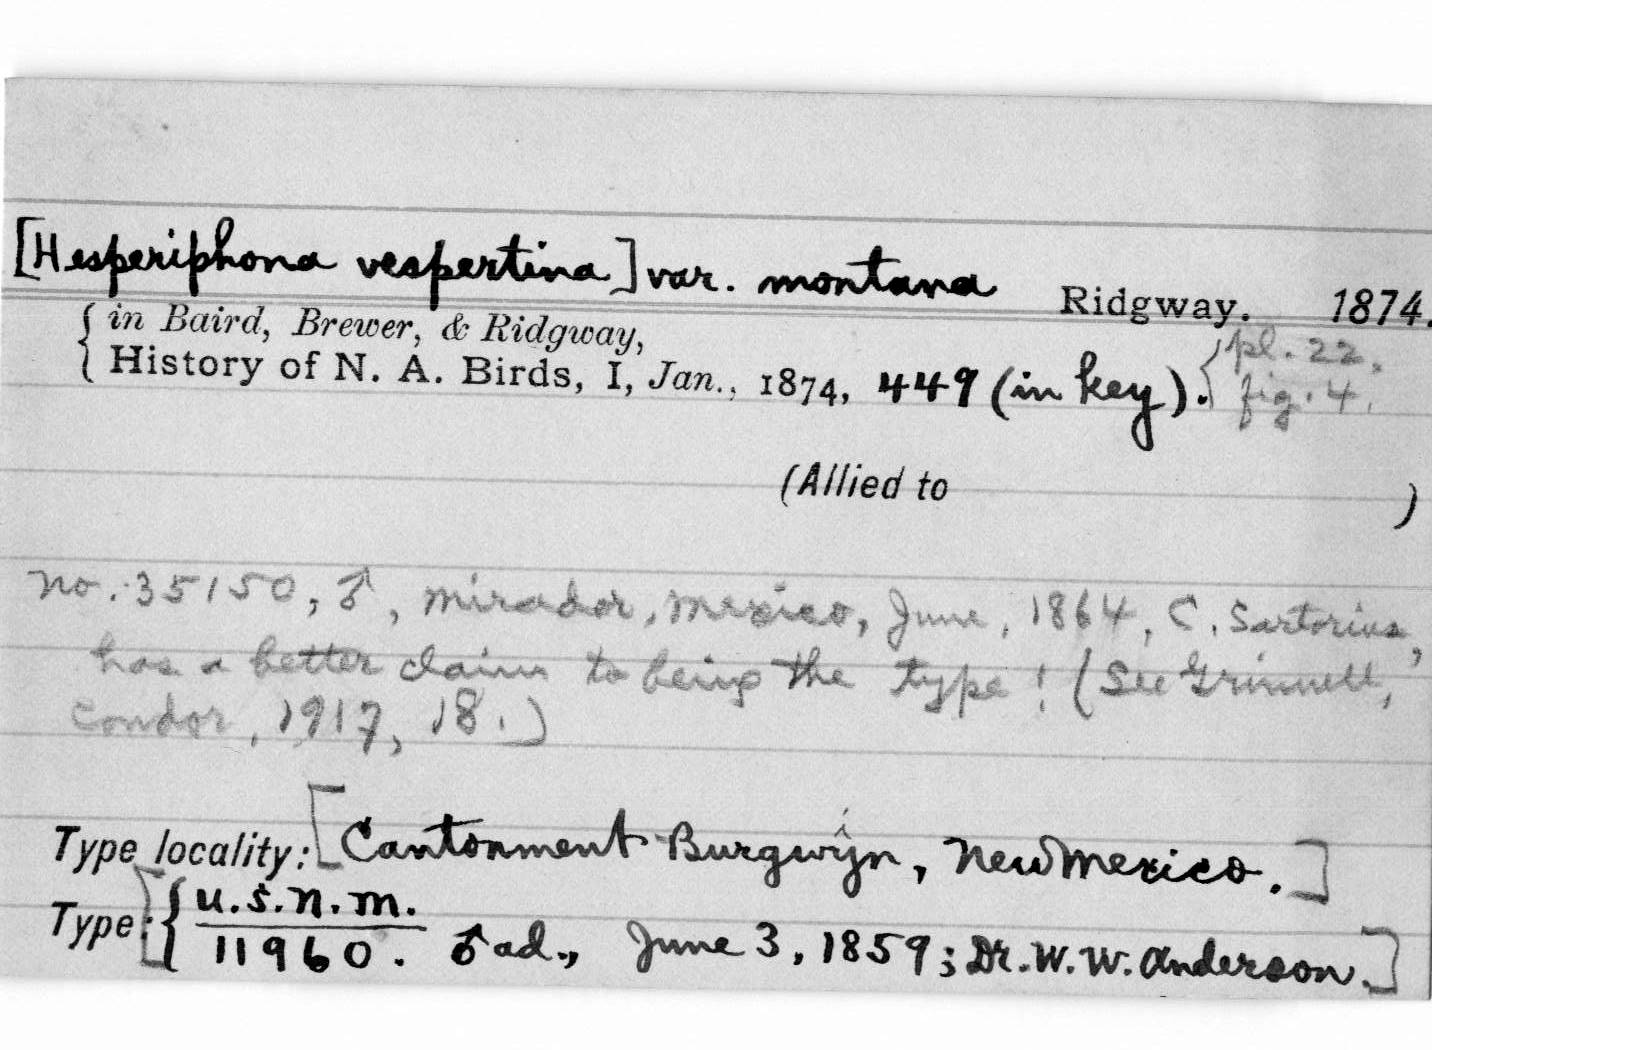 [Hesperiphona vespertina] var. montana Ridgway. 1874.
{ in Baird, Brewer, & Ridgway,
History of N. A. Birds, I, Jan., 1874, 449 (in key). { pl. 22, fig. 4.
(Allied to )
No. 35150, ♂, Mirador, Mexico, June, 1864, C. Sartorius,
has a better claim to being the type! (See Grinnell,
Condor, 1917, 18.)
Type locality: [Cantonment Burgwyn, New Mexico.]
Type: [{ U.S.N.M.
11960. ♂ ad., June 3, 1859; Dr. W. W. Anderson.]